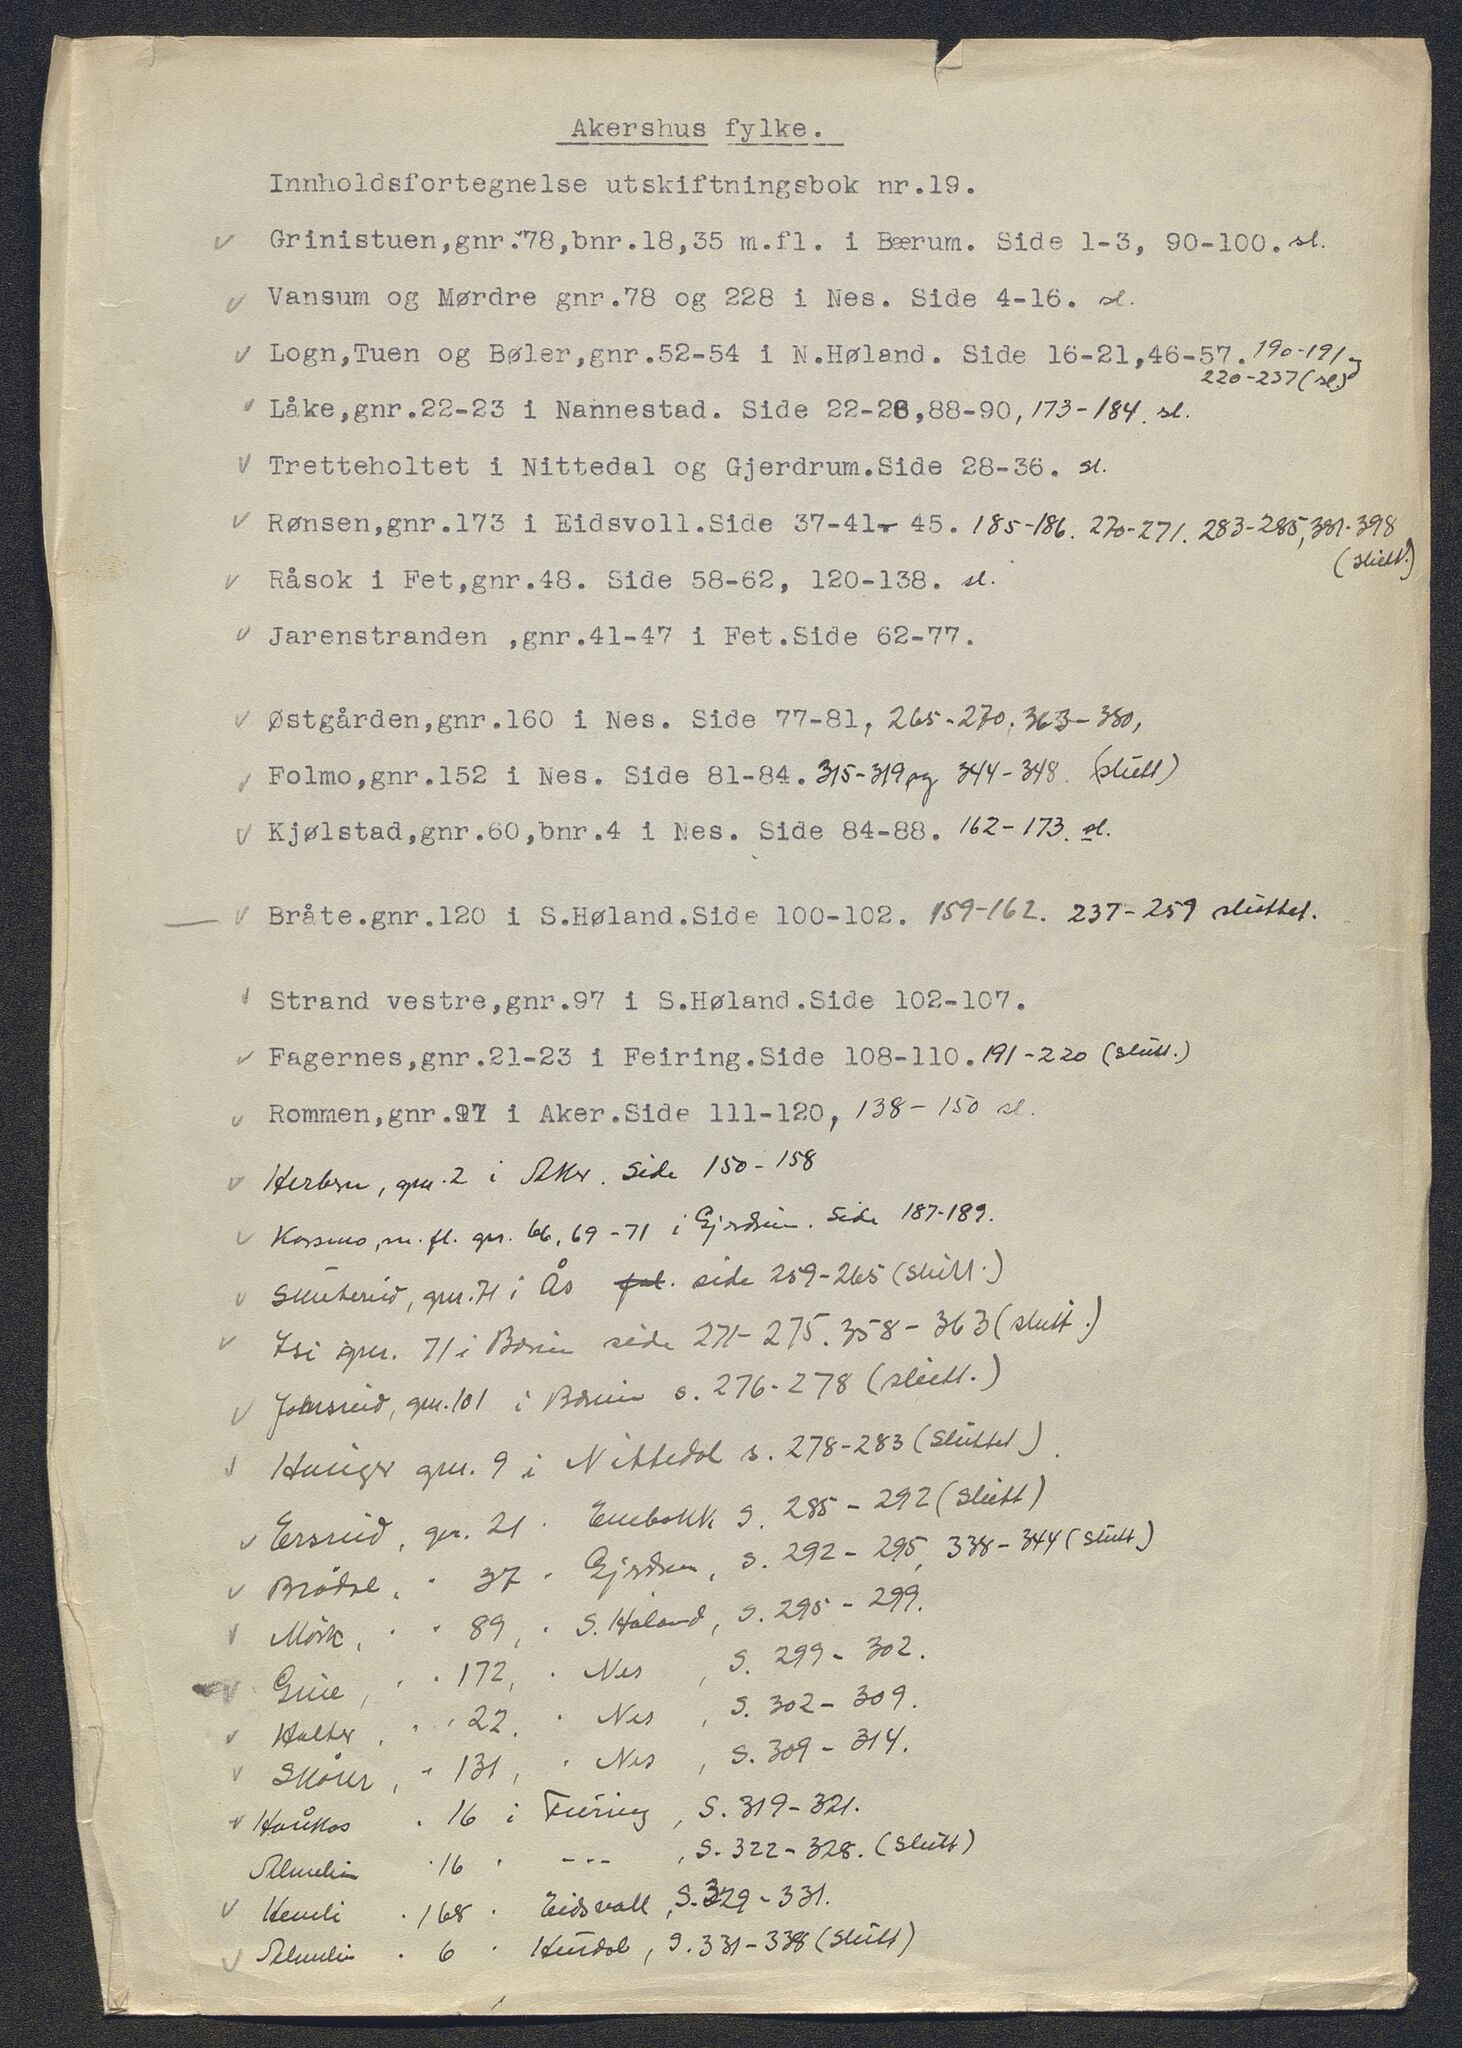 Akershus fylke.
Innholdsfortegnelse utskiftningsbok nr.19.
Grinistuen,gnr.78,bnr.18,35 m.fl. i Bærum. Side 1-3, 90-100. sl.
Vansum og Mørdre gnr.78 og 228 i Nes. Side 4-16. sl.
Logn,Tuen og Bøler,gnr.52-54 i N.Høland. Side 16-21,46-57. 190-191 og
220-237 (sl.)
Låke,gnr.22-23 i Nannestad. Side 22-28,88-90, 173-184. sl.
Tretteholtet i Nittedal og Gjerdrum.Side 28-36. sl.
Rønsen,gnr.173 i Eidsvoll.Side 37-41- 45. 185-186. 270-271. 283-285, 381-398
(slutt.)
Råsok i Fet,gnr.48. Side 58-62, 120-138. sl.
Jarenstranden ,gnr.41-47 i Fet.Side 62-77.
Østgården,gnr.160 i Nes. Side 77-81, 265-270, 363-380,
Folmo,gnr.152 i Nes. Side 81-84. 315-319 og 344-348. (slutt)
Kjølstad,gnr.60,bnr.4 i Nes. Side 84-88. 162-173. sl.
Bråte.gnr.120 i S.Høland.Side 100-102. 159-162. 237-259 sluttet.
Strand vestre,gnr.97 i S.Høland.Side 102-107.
Fagernes,gnr.21-23 i Feiring.Side 108-110. 191-220 (slutt.)
Rommen,gnr. i Aker.Side 111-120, 138-150 sl.
gnr. 2 i Aker. Side 150-158
Kossmo, m.fl. gnr. 66, 69-71 i Gjerdrum. Side 187-189.
Skuterud, gnr. 71 i Ås side 259-265 (slutt.)
Isi gnr. 71 i Bærum side 271-275. 358-363 (slutt.)
Johnsrud, gnr. 101 i Bærum s. 276-278 (slutt.)
gnr. 9 i Nittedal s. 278-283 (sluttet)
Ersrud, gnr. 21 " Enebakk s. 285-292 (slutt)
Brådal, " 37 " Gjerdrum, s. 292-295, 338-344 (slutt.)
Mørk, " " 89, " S. Høland, s. 295-299.
" " 172, " Nes, s. 299-302.
Halter, " " 22, " Nes, s. 302-309.
Skårer, " 131, " Nes, s. 309-314.
Haukås " 16 i Feiring, s. 319-321.
Almelin " 16 " - - - , s. 322-328. (slutt)
Hemli " 168 " Eidsvoll, s. 329-331.
Almelin " 6 " Hurdal, s. 331-338 (slutt)